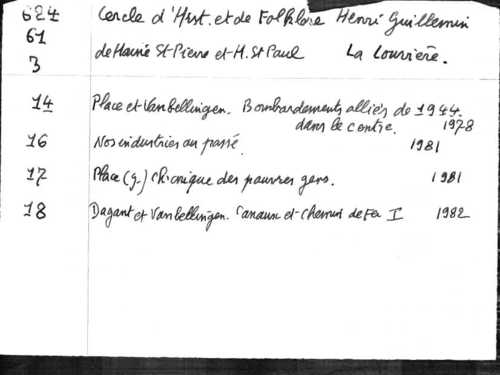 624 Cercle d'Hist. et de Folklore Henri Guillemin
61
de Haine St Pierre et H. St Paul La Louvière.
3
14 Place et Van Bellingen. Bombardements alliés de 1944
dans le centre. 1978
16 Nos industries au passé. 1981
17 Place (g.) Chronique des pauvres gens. 1981
18 Dagant et Van Bellingen. Canaux et Chemin de Fer I 1982